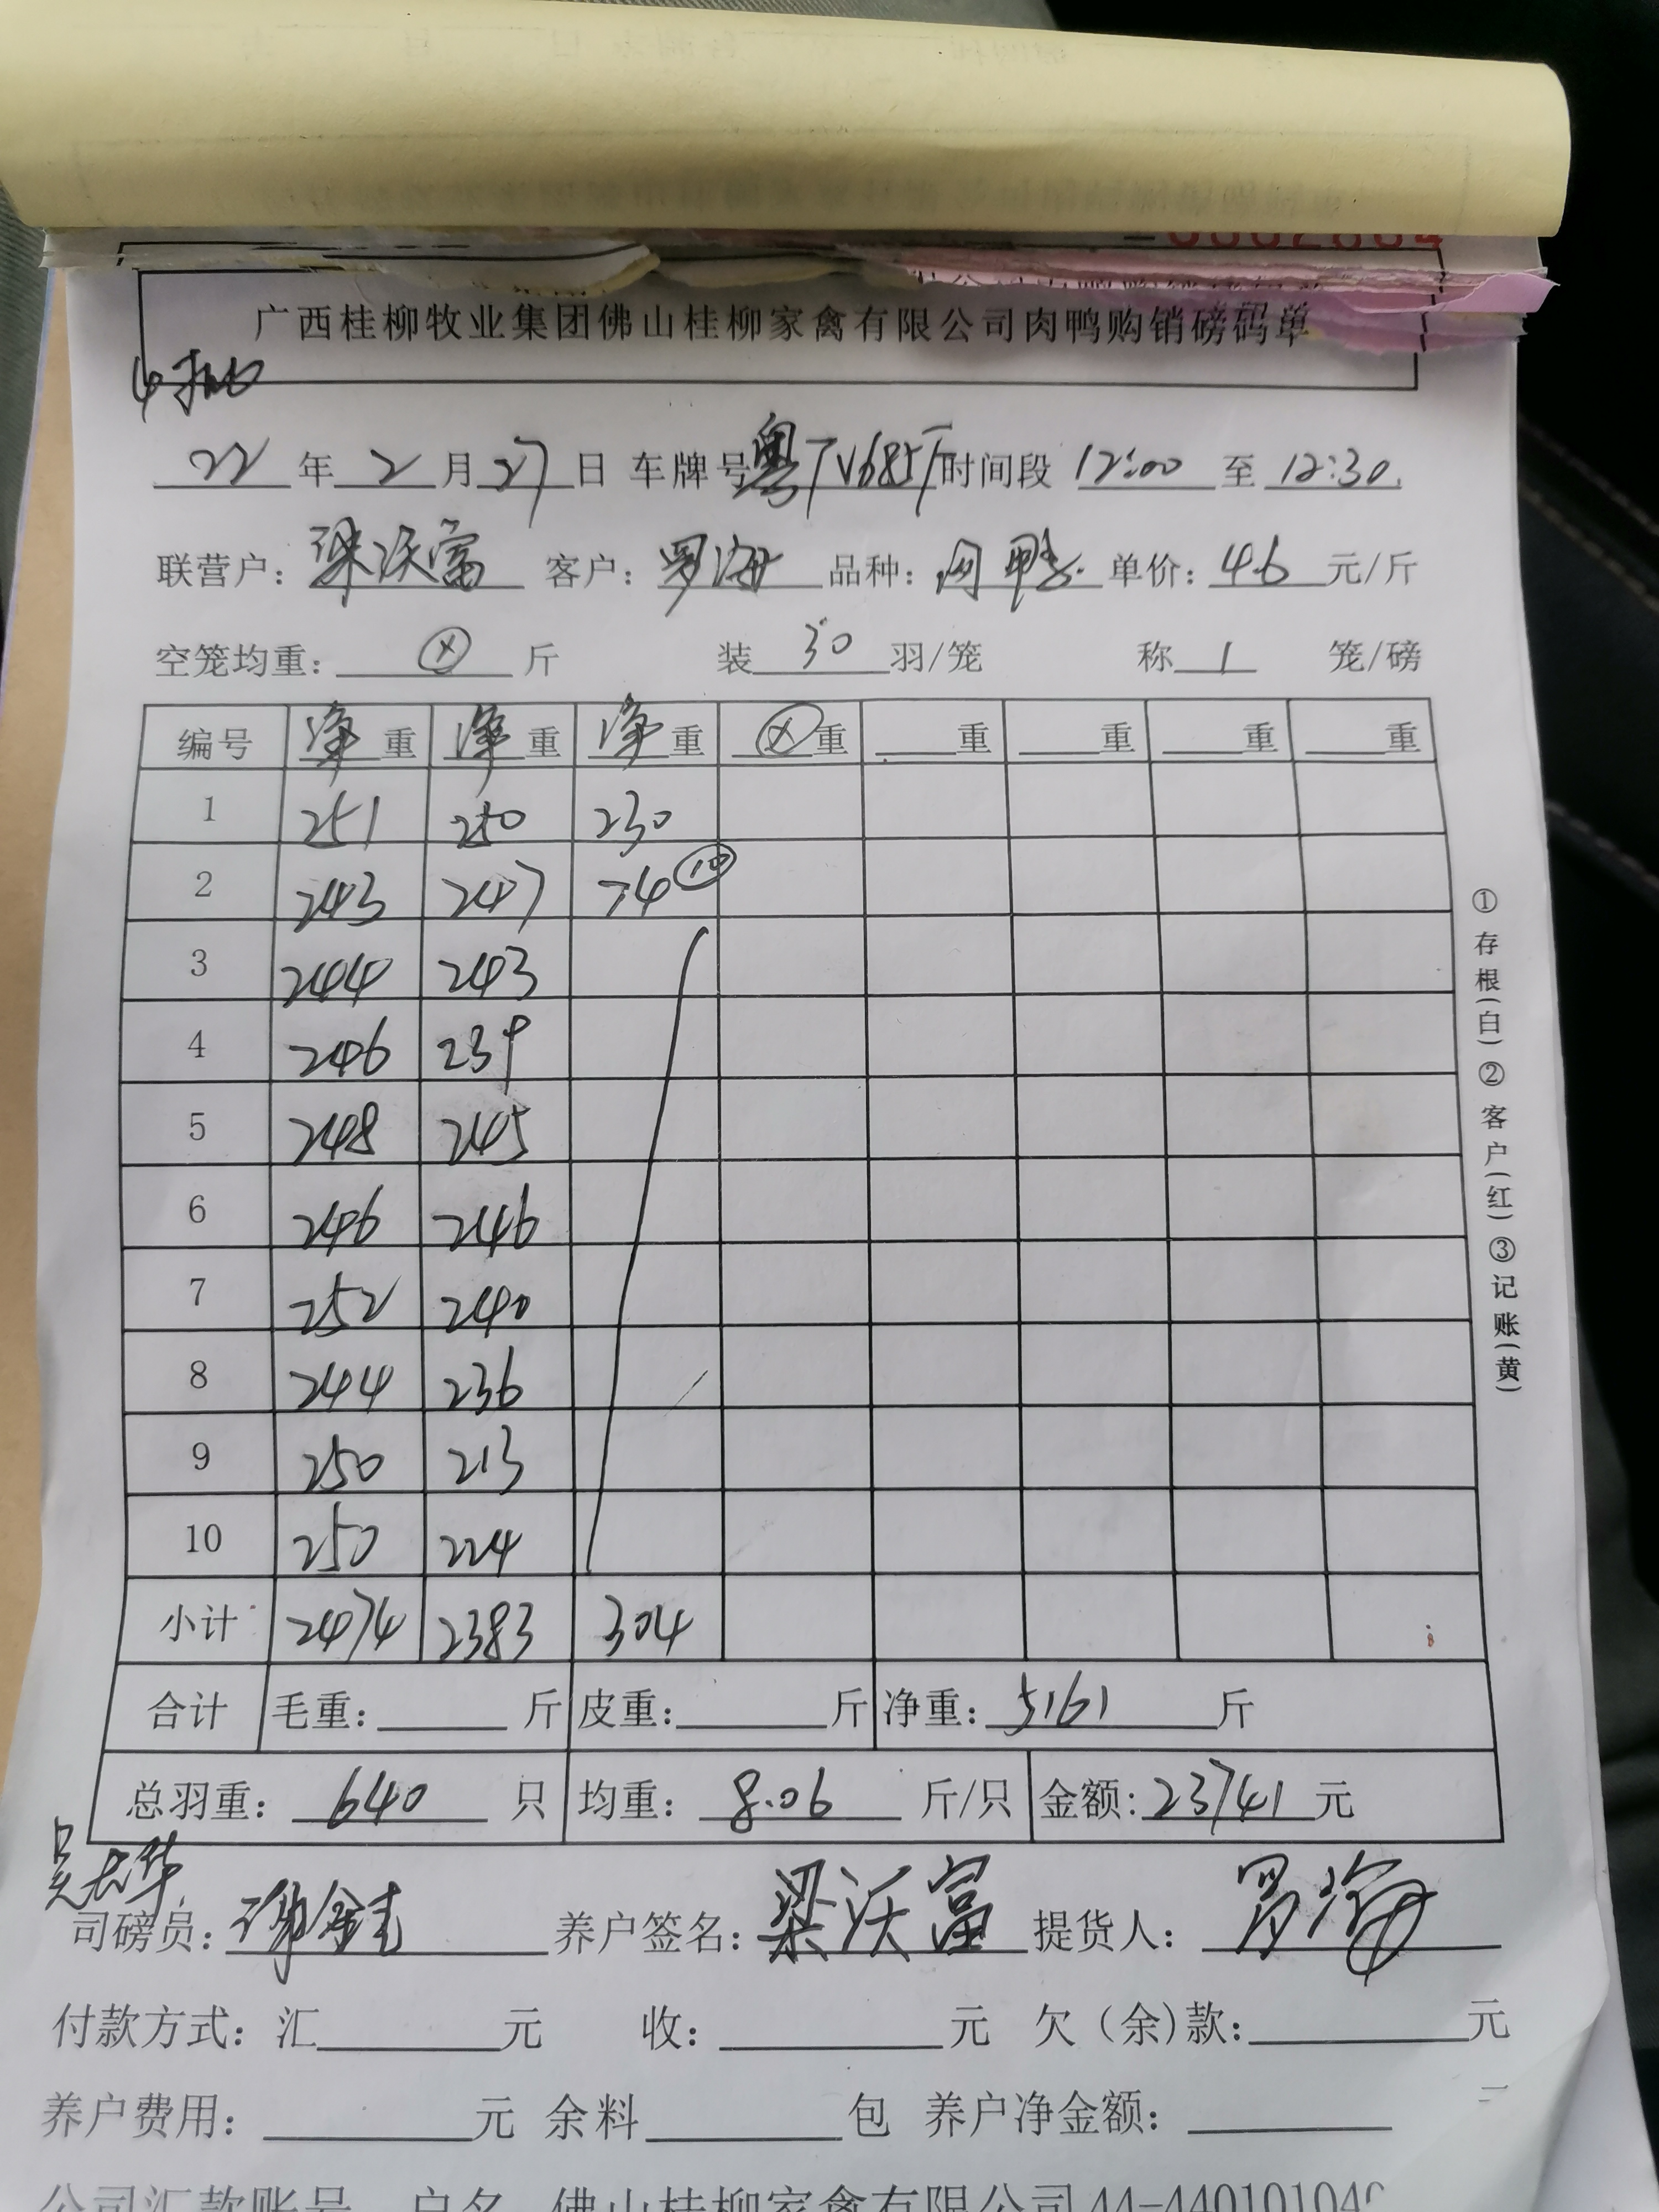 广西桂柳牧业集团佛山桂柳家禽有限公司肉鸭购销磅码单
22年2月27日 车牌号粤TV685F时间段 12:00 至 12:30
联营户：梁沃富 客户：罗海 品种：肉鸭 单价：4.6 元/斤
空笼均重：ⓧ 斤 装 30 羽/笼 称 1 笼/磅
编号 净重 净重 净重 ⓧ重 重 重 重 重
1 251 250 230
2 243 247 74 ⑩
3 244 243
4 246 239
5 248 245
6 246 246
7 252 240
8 244 236
9 250 213
10 250 224
小计 2474 2383 304
合计 毛重： 斤 皮重： 斤 净重：5161 斤
总羽重：640 只 均重：8.06 斤/只 金额：23741 元
司磅员： 养户签名：梁沃富 提货人：罗海
付款方式：汇 元 收： 元 欠（余）款： 元
养户费用： 元 余料 包 养户净金额：
公司汇款账号 户名 佛山桂柳家禽有限公司44-44010104
①存根(白)②客户(红)③记账(黄)